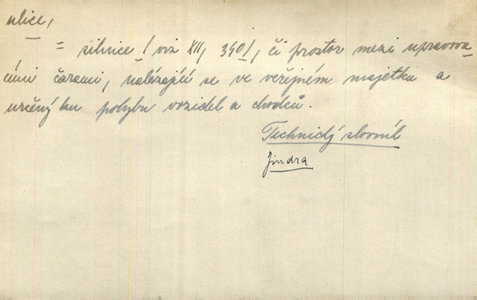 ulice,
= silnice / viz XII, 340/, či prostor mezi upravova-
cími čarami, nalézající se ve veřejném majetku a
určený ku pohybu vozidel a chodců.
Technický slovník
Jindra